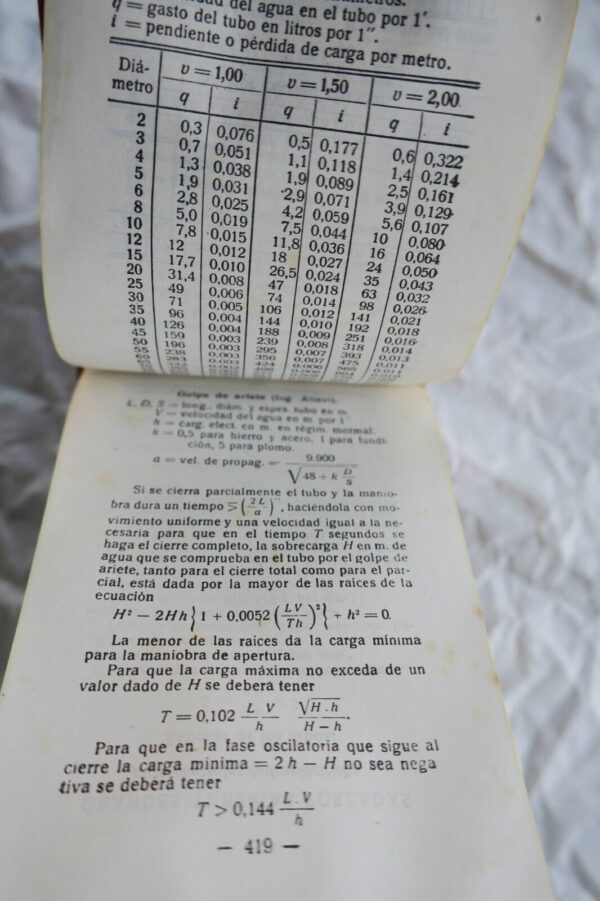 dad del agua en el tubo por 1″.
q = gasto del tubo en litros por 1″.
i = pendiente o pérdida de carga por metro.
Diámetro v = 1,00 v = 1,50 v = 2,00
q i q i q i
2 0,3 0,076 0,5 0,177 0,6 0,322
3 0,7 0,051 1,1 0,118 1,4 0,214
4 1,3 0,038 1,9 0,089 2,5 0,161
5 1,9 0,031 2,9 0,071 3,9 0,129
6 2,8 0,025 4,2 0,059 5,6 0,107
8 5,0 0,019 7,5 0,044 10 0,080
10 7,8 0,015 11,8 0,036 16 0,064
12 12 0,012 18 0,027 24 0,050
15 17,7 0,010 26,5 0,024 35 0,043
20 31,4 0,008 47 0,018 63 0,032
25 49 0,006 74 0,014 98 0,026
30 71 0,005 106 0,012 141 0,021
35 96 0,004 144 0,010 192 0,018
40 126 0,004 188 0,009 251 0,016
45 159 0,003 239 0,008 318 0,014
50 196 0,003 295 0,007 393 0,013
55 238 0,003 356 0,007 475 0,011
Golpe de ariete (Ing Allievi).
L. D. S = long., diám. y espes. tubo en m.
V = velocidad del agua en m. por 1″
h = carg. elect. en m. en régim. mormal.
k = 0,5 para hierro y acero, 1 para fundi-
ción, 5 para plomo.
a = vel. de propag. = 9.900 / √(48 + k D/S)
Si se cierra parcialmente el tubo y la manio-
bra dura un tiempo ⋝ (2L/a)″, haciéndola con mo-
vimiento uniforme y una velocidad igual a la ne-
cesaria para que en el tiempo T segundos se
haga el cierre completo, la sobrecarga H en m. de
agua que se comprueba en el tubo por el golpe de
ariete, tanto para el cierre total como para el par-
cial, está dada por la mayor de las raices de la
ecuación
H² − 2Hh { 1 + 0,0052 (LV/Th)² } + h² = 0.
La menor de las raices da la carga mínima
para la maniobra de apertura.
Para que la carga máxima no exceda de un
valor dado de H se deberá tener
T = 0,102 L V/h √H.h/H − h.
Para que en la fase oscilatoria que sigue al
cierre la carga minima = 2 h − H no sea nega
tiva se deberá tener
T > 0,144 L.V/h
— 419 —